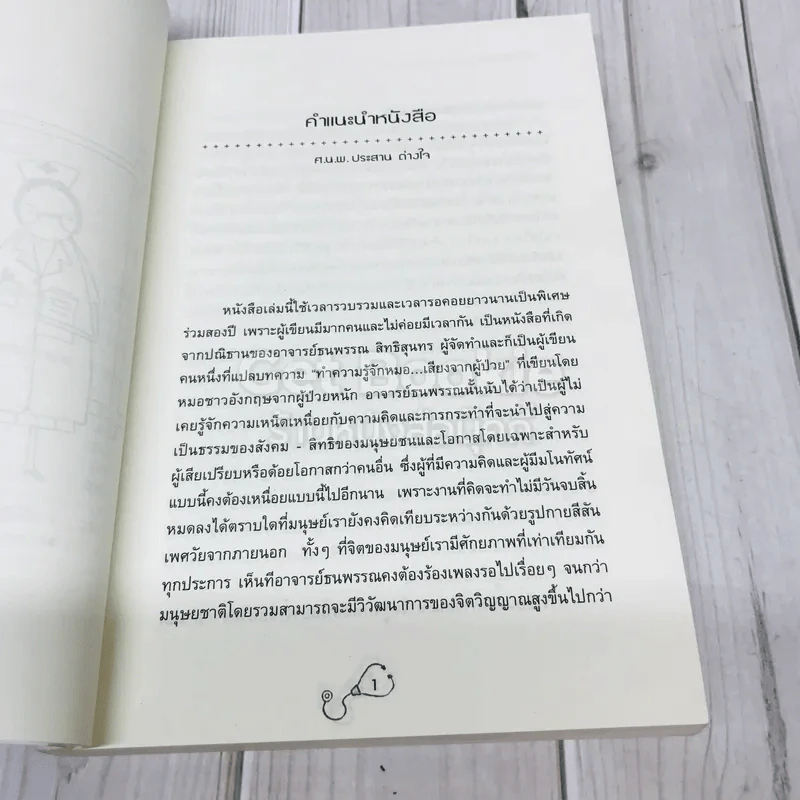 คำแนะนำหนังสือ
ศ.น.พ. ประสาน ต่างใจ
หนังสือเล่มนี้ใช้เวลารวบรวมและเวลารอคอยยาวนานเป็นพิเศษ
ร่วมสองปี เพราะผู้เขียนมีมากคนและไม่ค่อยมีเวลากัน เป็นหนังสือที่เกิด
จากปณิธานของอาจารย์ธนพรรณ สิทธิสุนทร ผู้จัดทำและก็เป็นผู้เขียน
คนหนึ่งที่แปลบทความ "ทำความรู้จักหมอ...เสียงจากผู้ป่วย" ที่เขียนโดย
หมอชาวอังกฤษจากผู้ป่วยหนัก อาจารย์ธนพรรณนั้นนับได้ว่าเป็นผู้ไม่
เคยรู้จักความเหน็ดเหนื่อยกับความคิดและการกระทำที่จะนำไปสู่ความ
เป็นธรรมของสังคม - สิทธิของมนุษยชนและโอกาสโดยเฉพาะสำหรับ
ผู้เสียเปรียบหรือด้อยโอกาสกว่าคนอื่น ซึ่งผู้ที่มีความคิดและผู้มีมโนทัศน์
แบบนี้คงต้องเหนื่อยแบบนี้ไปอีกนาน เพราะงานที่คิดจะทำไม่มีวันจบสิ้น
หมดลงได้ตราบใดที่มนุษย์เรายังคงคิดเทียบระหว่างกันด้วยรูปกายสีสัน
เพศวัยจากภายนอก ทั้งๆ ที่จิตของมนุษย์เรามีศักยภาพที่เท่าเทียมกัน
ทุกประการ เห็นทีอาจารย์ธนพรรณคงต้องร้องเพลงรอไปเรื่อยๆ จนกว่า
มนุษยชาติโดยรวมสามารถจะมีวิวัฒนาการของจิตวิญญาณสูงขึ้นไปกว่า
1